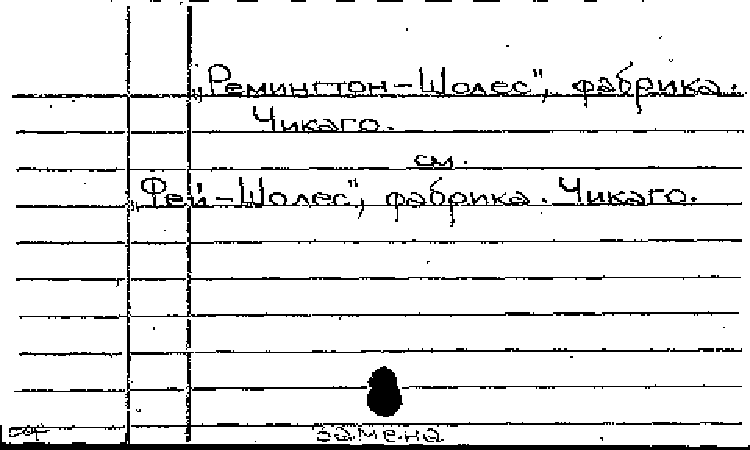 „Ремингтон-Шолес", фабрика.
Чикаго.
см.
„Фей-Шолес", фабрика. Чикаго.
замена